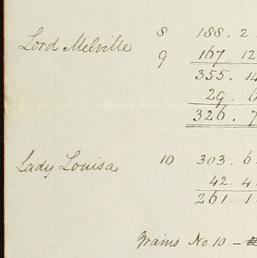 8 188. 2
Lord Melville
9 167 12
355. 14
29.
326. 7
Lady Louisa 10 303. 6
42. 4
261. 1
Grains No 10 –